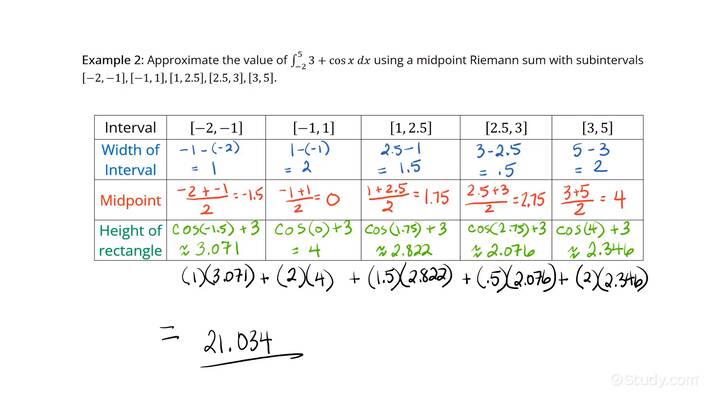 Example 2: Approximate the value of ∫₋₂⁵ 3 + cos x dx using a midpoint Riemann sum with subintervals
[−2, −1], [−1, 1], [1, 2.5], [2.5, 3], [3, 5].
Interval [−2, −1] [−1, 1] [1, 2.5] [2.5, 3] [3, 5]
Width of Interval -1-(-2) = 1 1-(-1) = 2 2.5-1 = 1.5 3-2.5 = .5 5-3 = 2
Midpoint (-2+-1)/2 = -1.5 (-1+1)/2 = 0 (1+2.5)/2 = 1.75 (2.5+3)/2 = 2.75 (3+5)/2 = 4
Height of rectangle cos(-1.5)+3 ≈ 3.071 cos(0)+3 = 4 cos(1.75)+3 ≈ 2.822 cos(2.75)+3 ≈ 2.076 cos(4)+3 ≈ 2.346
(1)(3.071) + (2)(4) + (1.5)(2.822) + (.5)(2.076) + (2)(2.346)
= 21.034
©Study.com